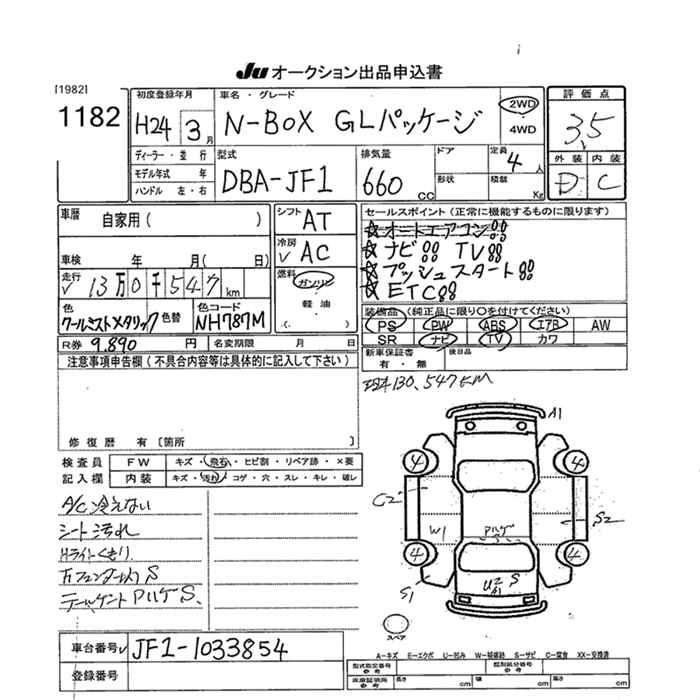 Ju オークション出品申込書
[1982]
1182
初度登録年月
H24 3月
車名・グレード
N-BOX GLパッケージ
2WD
4WD
評価点
3.5
外装 内装
D C
ディーラー・並行
モデル年式 年
ハンドル 左・右
型式
DBA-JF1
排気量
660 CC
ドア
形状
定員
4 人
積載
Kg
車歴 自家用( )
車検 年 月( 日)
走行
13万0千547km
シフト AT
冷房 AC
燃料
ガソリン
軽油
( )
色
クールミストメタリック 色替
色コード
NH787M
R券 9,890 円
名変期限 月 日
セールスポイント(正常に機能するものに限ります)
☆オートエアコン
☆ナビ TV
☆プッシュスタート
☆ETC
装備品(純正品に限り○を付けてください)
PS PW ABS エアB AW
SR ナビ TV カワ
新車保証書
有・無
後日品
注意事項申告欄(不具合内容等は具体的に記入して下さい)
130,547KM
修復歴 有〔箇所 〕
検査員
記入欄
FW キズ・飛石・ヒビ割・リペア跡・×要
内装 キズ・汚れ・コゲ・穴・スレ・キレ・破レ
A/C冷えない
シート汚れ
Hライトくもり
テールゲントPハゲS、
A1
4
4
C2
S2
W1
Pハゲ
4
4
S1
U2 S
A1
スペア
車台番号 JF1-1033854
登録番号
A-キズ E-エクボ U-凹み W-補修跡 S-サビ C-腐食 XX-交換済
型式指定番号
参考
類別区分番号
参考
車庫証明用
参考
長さ cm
幅 cm
高さ cm